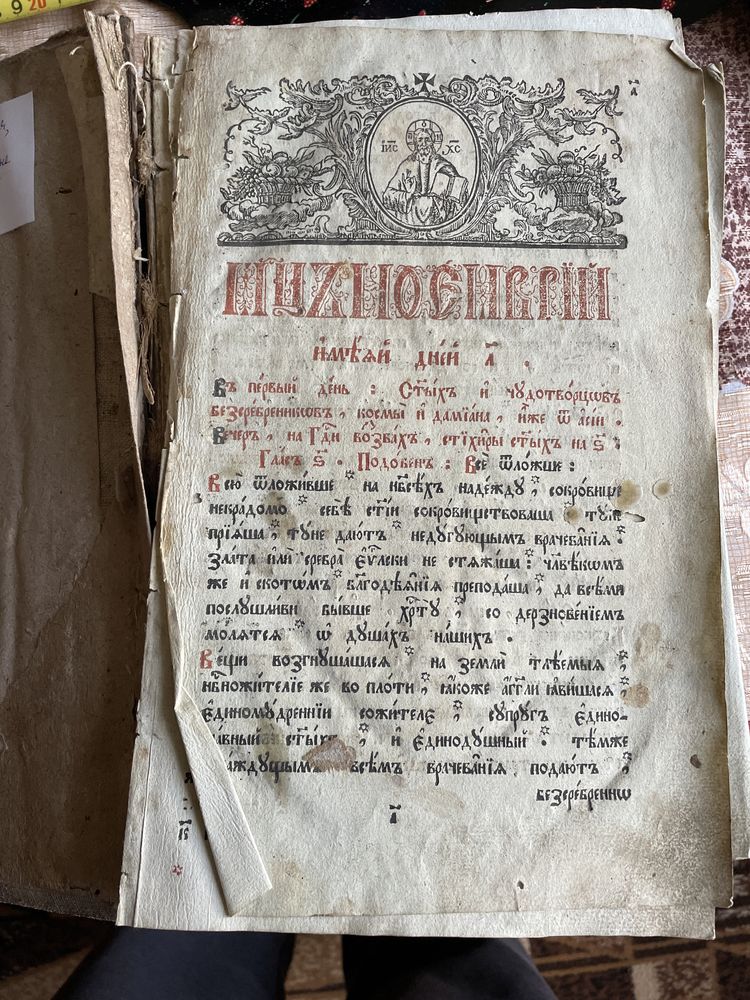 9 20
҃а
І҃ИС Х҃С
МЦ҃Ъ НОЕ́МВРІЙ
И҆МѢ́ѦЙ ДНІ́Й Л҃ .
Въ пе́рвый де́нь : Ст҃ы́хъ и҆ чꙋдотво́рцѡвъ
безсре́бренникѡвъ , космы̀ и҆ дамїа́на , и҆̀же ѿ а҆сі́и .
Ве́черъ , на Гдⷭ҇и возва́хъ , стїхи̑ры ст҃ы́хъ на ѕ҃ :
Гла́съ ѕ҃ . Подо́бенъ : Всѐ ѿло́жше :
Всю̀ ѿложи́вше * на нб҃сѣ́хъ наде́ждꙋ , * сокро́вище
некра́домо * себѣ̀ ст҃і́и сокро́виществоваша * тꙋ́не
прїѧ́ша , * тꙋ́не даю́тъ * недꙋ́гꙋющымъ врачева̑нїѧ :
зла́та и҆лѝ сребра̀ є҆ѵⷢ҇льски не стѧжа́ша : * чл҃вѣ́кѡмъ
же и҆ скотѡ́мъ * бл҃годѣѧ̑нїѧ препода́ша , * да всѣ́ми
послꙋшли́ви бы́вше хрⷭ҇тꙋ̀ , * со дерзнове́нїемъ
мо́лѧтсѧ * ѡ҆ дꙋша́хъ на́шихъ .
Ве́щи возгнꙋша́шасѧ * на землѝ тлѣ́емыѧ , *
нб҃ножи́телїе же во пло́ти , * ꙗ҆́коже а҆́гг҃ли ꙗ҆ви́шасѧ , *
є҆диномꙋ́дреннїи сожи́телє , * сꙋпрꙋ́гъ є҆дино-
нра́вный ст҃ы́хъ , * и҆ є҆динодꙋ́шный . * тѣ́мже
стра́ждꙋщымъ всѣ̑мъ врачева̑нїѧ подаю́тъ , *
безсре́бреннѡ
а҃